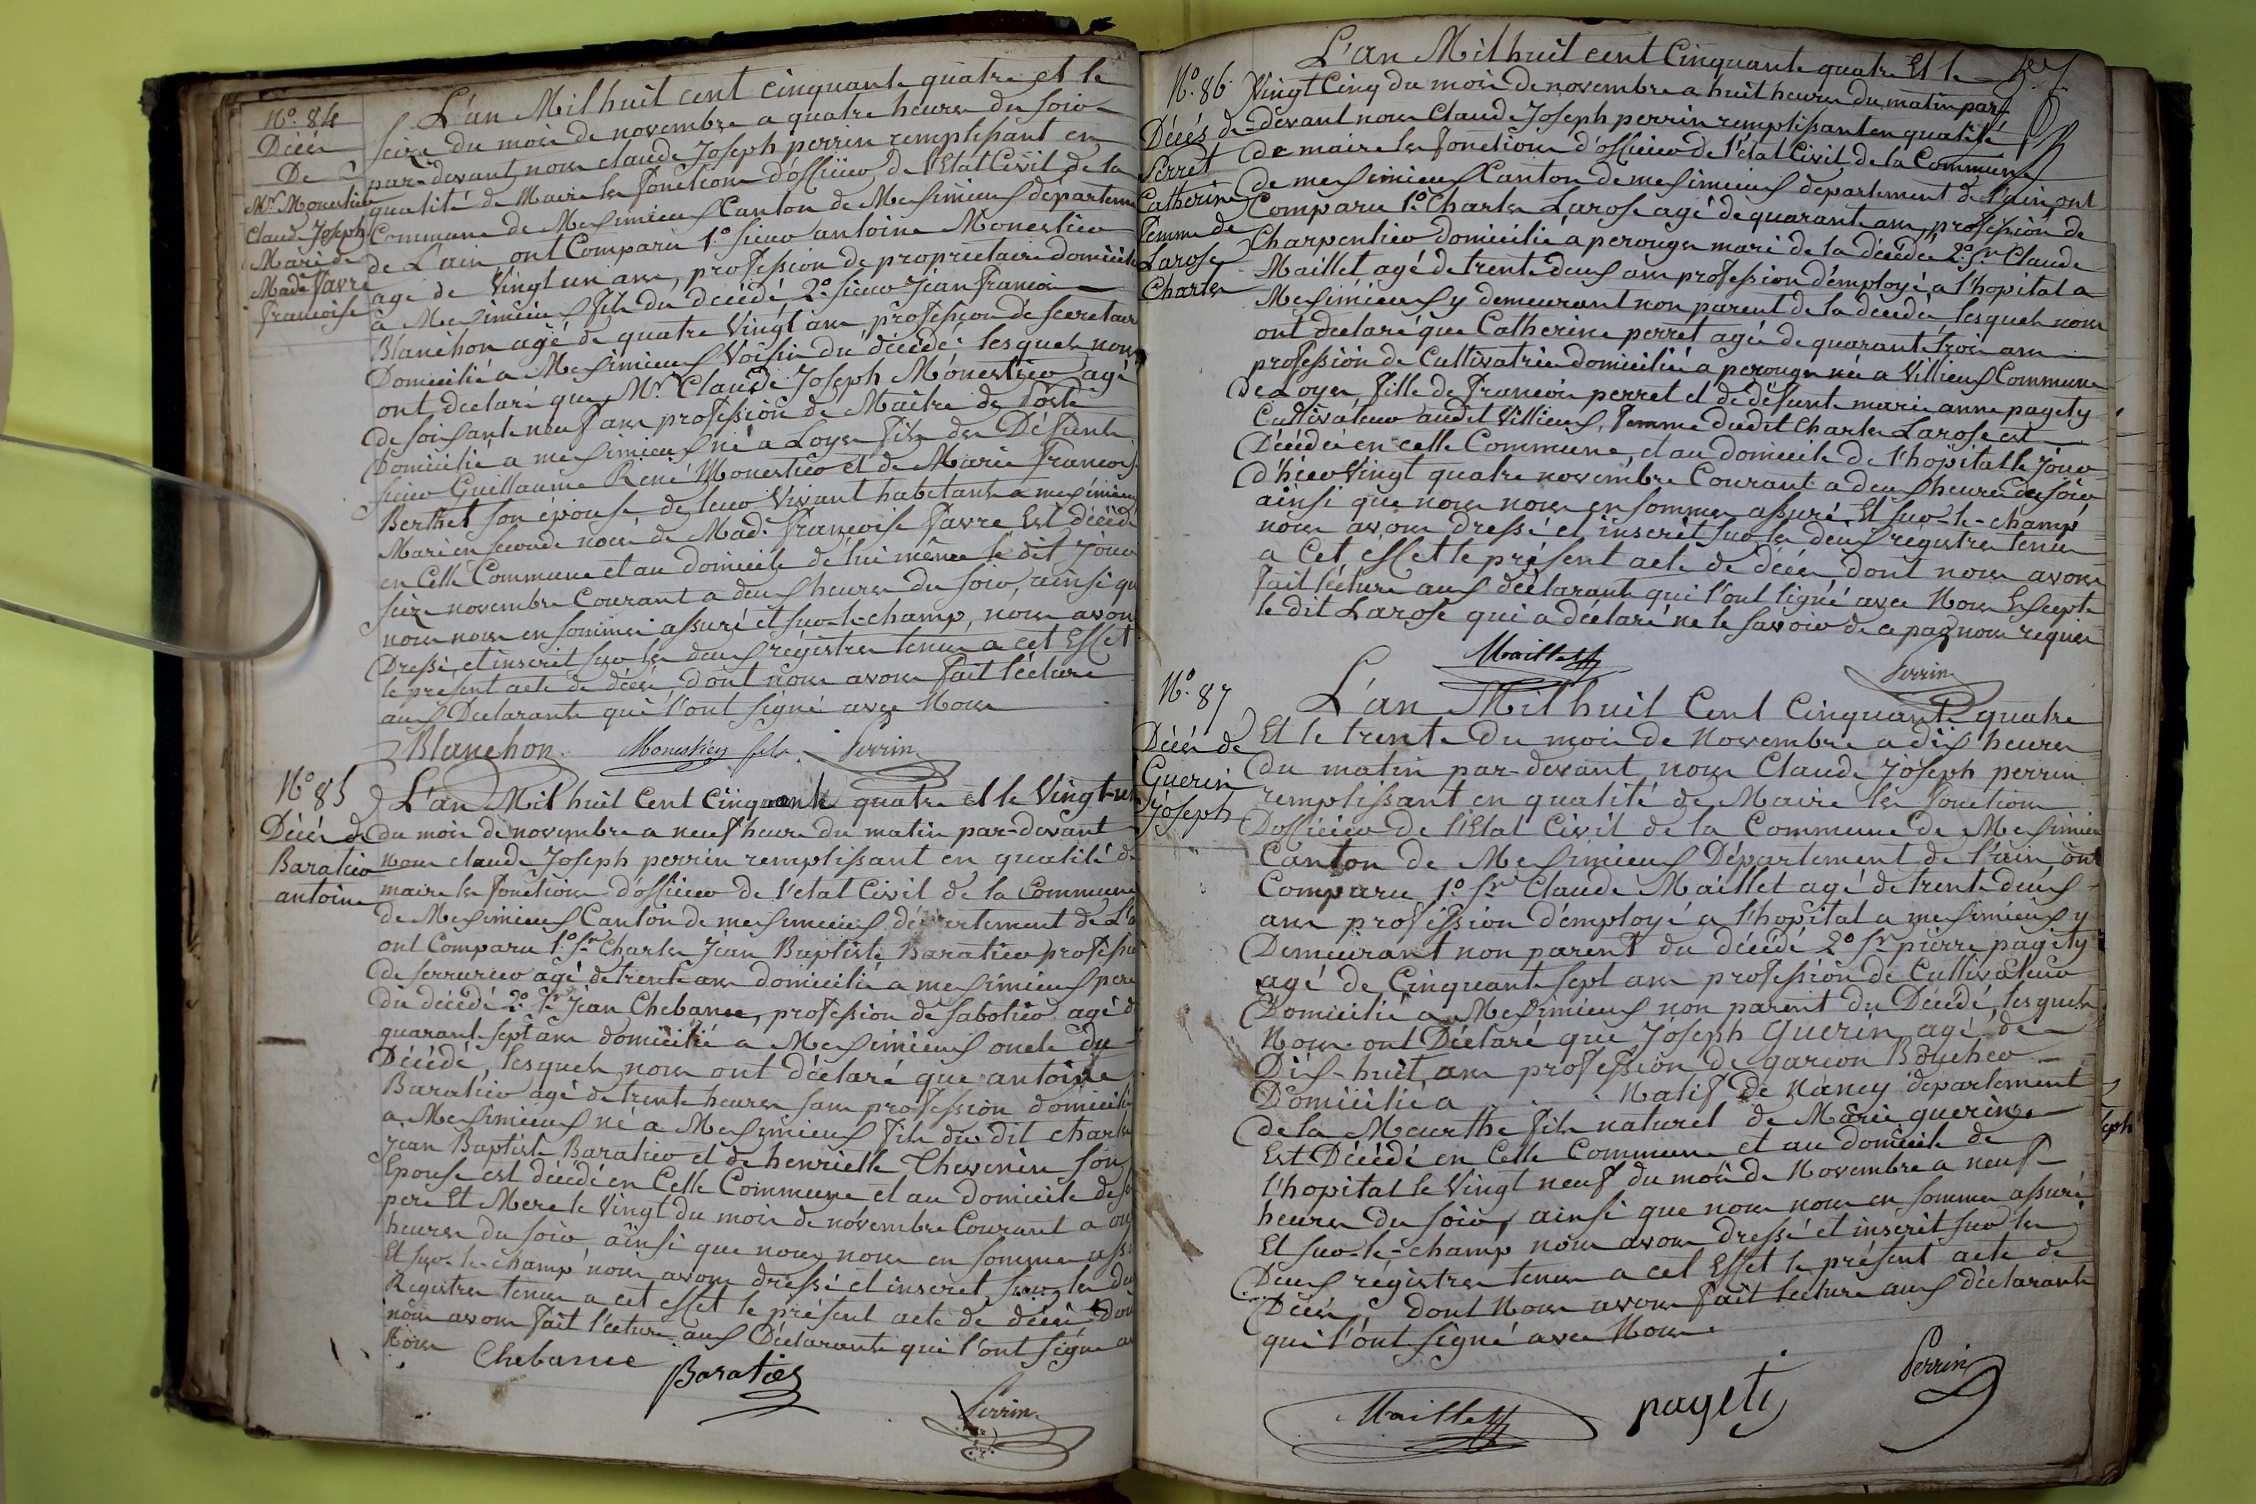 N.o 84
Décés
De
Mr. Monestier
Claude Joseph
Mari de
Made. favre
françoise
L'an Mil huit cent cinquante quatre et le
seize du mois de novembre a quatre heures du soir
par-devant nous claude Joseph perrin remplissant en
qualité de Maire les fonctions d'officier de l'Etat Civil de la
Commune de Meximieux Canton de Meximieux départeme
de L'ain ont Comparu 1.o sieur antoine Monestier
agé de Vingt un ans, profession de propriétaire domicilié
à Meximieux fils du décédé 2.o sieur Jean françois
Blanchon agé de quatre Vingt ans profession de secretaire
Domicilié a Meximieux Voisin du décédé lesquels nous
ont déclaré que Mr. Claude Joseph Monestier agé
de soixante neuf ans profession de Maitre de Poste
Domicilié a meximieux né a Loyes fils des Défunts
sieur Guillaume René Monestier et de Marie françoise
Berthet son épouse de leur Vivant habitants a meximieux
Mari en seconde noces de Made. françoise favre Est décédé
en Cette Commune et au domicile de lui même le dit jour
seize novembre Courant a deux heures du soir, ainsi que
nous nous en sommes assuré et sur-le-champ, nous avons
Dressé et inscrit sur les deux régistres tenus a cet Effet
le présent acte de décès dont nous avons fait lécture
aux Declarants qui l'ont signé avec Nous
Blanchon Monestier fils Perrin
N.o 85
Décés de
Baratier
antoine
L'an Mil huit Cent Cinquante quatre et le Vingt-un
du mois de novembre a neuf heure du matin par-devant
Nous claude Joseph perrin remplissant en qualité de
maire les fonctions d'officier de l'etat Civil de la Commune
de Meximieux Canton de meximieux département de L'a
ont Comparu 1.o Sr Charles Jean Baptiste Baratier profession
de serrurier agé de trente ans domicilié a meximieux pere
du décédé 2.o Sr Jean Chebance, profession de sabotier agé d
quarante sept ans domicilié a Meximieux oncle du
Décédé, lesquels nous ont déclaré que antoine
Baratier agé de trente heures sans profession domicilié
a Meximieux né a Meximieux fils du dit charles
Jean Baptiste Baratier et de henriette Thevenin son
Epouse est décédé en Cette Commune et au domicile de
pere Et Mere le Vingt du mois de novembre Courant a on
heures du soir ainsi que nous nous en sommes assu
Et sur-le-champ nous avons dressé et inscrit sur les deu
Registres tenus a cet effet le présent acte de décès don
nous avons fait l'ecture aux Déclarants qui l'ont signé av
Nous
Chebance Baratier
Perrin
N.o 86
Décés de
Perret
Catherine
femme de
Larose
Charles
L'an Mil huit cent Cinquante quatre Et le
Vingt Cinq du mois de novembre a huit heures du matin par
-devant nous Claude Joseph perrin remplissant en qualité
de maire les fonctions d'officier de l'état Civil de la Commune
de meximieux Canton de meximieux département de l'ain ont
Comparu 1.o Charles Larose agé de quarante ans, profession de
Charpentier domicilié a perouges mari de la décédée 2.o Sr Claude
Maillet agé de trente deux ans profession d'employé a l'hopital a
Meximieux y demeurant non parent de la décédée, lesquels nous
ont déclaré que Catherine perret agé de quarante trois ans
profession de Cultivatrice domicilié a perouges née a Villieux Commune
de Loyes, fille de francois perret et de défunte marie anne pagety
Cultivateur audit Villieux, femme dudit Charles Larose est
Décédée en cette Commune, et au domicile de l'hôpital le Jour
d'hier Vingt quatre novembre Courant a deux heures du soir
ainsi que nous nous en sommes assuré, Et sur-le-champ
nous avons dressé et inscrit sur les deux régistres tenus
a Cet effet le présent acte de décès dont nous avons
fait l'écture aux déclarants qui l'ont signé avec Nous Excepté
le dit Larose qui a déclaré ne le savoir de ce par nous requis
Maillet Perrin
N.o 87
Décès de
Guerin
Joseph
L'an Mil huit Cent Cinquante quatre
Et le trente du mois de Novembre a dix heures
du matin par-devant nous Claude Joseph perrin
remplissant en qualité de Maire les fonctions
D'officier de l'Etat Civil de la Commune de Meximieu
Canton de Meximieux Département de l'ain ont
Comparu 1.o Sr Claude Maillet agé de trente deux
ans profession d'employé a l'hopital a meximieux y
Demeurant non parent du décédé 2.o Sr pierre pagety
agé de Cinquante sept ans profession de Cultivateur
Domicilié a Meximieux non parent du Décédé, lesquels
Nous ont Déclaré que Joseph Guerin, agé de
Dix-huit ans profession de garcon Boucher
Domicilié a . . . . Natif de Nancy département
de la Meurthe fils naturel de Marie guerin
Est Décédé en Cette Commune et au domicile de
l'hopital le Vingt neuf du mois de Novembre a neuf
heures du soir, ainsi que nous nous en sommes assuré
Et sur-le-champ nous avons dressé et inscrit sur les
Deux régistres tenus a cet Effet le présent acte de
Décès, dont Nous avons fait lecture aux déclarants
qui l'ont signé avec Nous.
Maillet pagety Perrin
seph